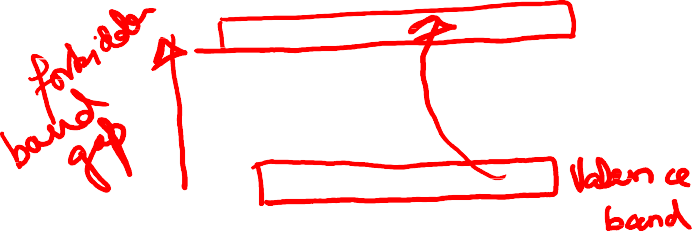 forbidden
band
gap
Valence
band